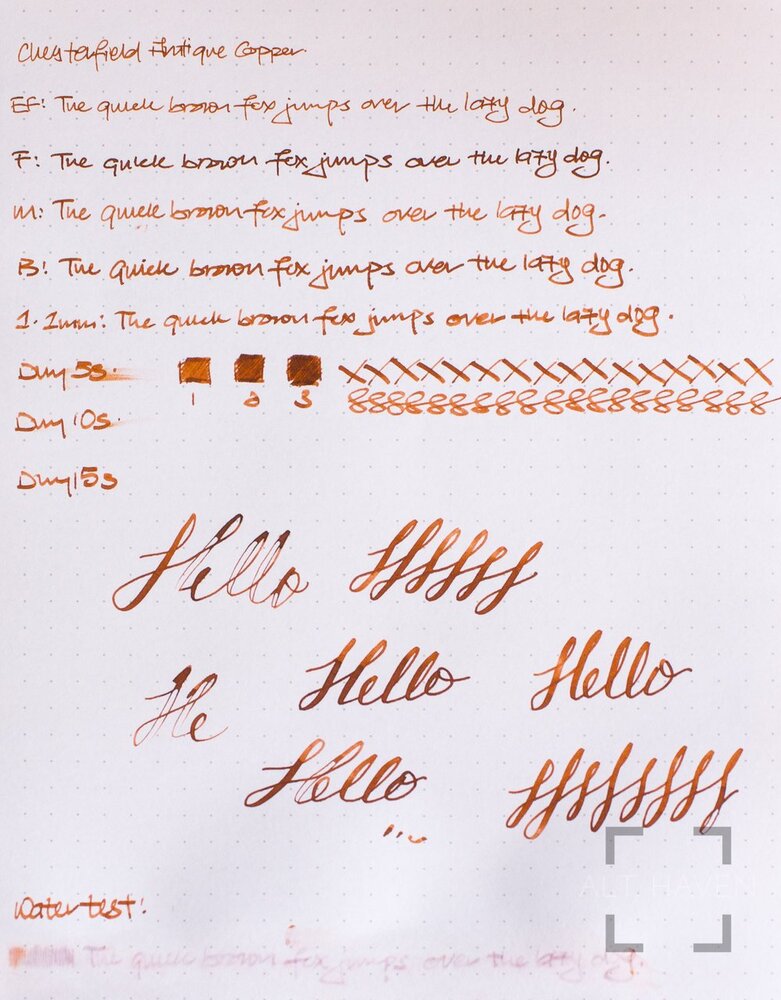 Chesterfield Antique Copper.
EF: The quick brown fox jumps over the lazy dog.
F: The quick brown fox jumps over the lazy dog.
M: The quick brown fox jumps over the lazy dog.
B: The Quick brown fox jumps over the lazy dog.
1.1mm: The quick brown fox jumps over the lazy dog.
Dry 5s.
1 2 3
Dry 10s.
Dry 15s
Hello
He Hello Hello
Hello
Water test:
The quick brown fox jumps over the lazy dog.
ALT HAVEN